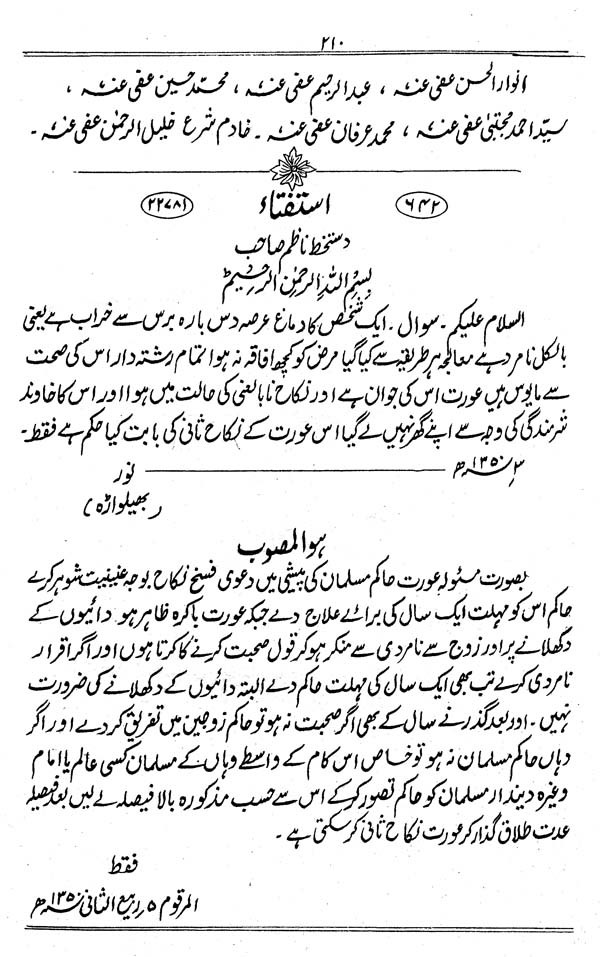 ۲۱۰
انوار الحسن عفی عنہ ، عبد الرحیم عفی عنہ ، محمد حسین عفی عنہ ،
سید احمد مجتبیٰ عفی عنہ ، محمد عرفان عفی عنہ ۔ خادم شرع خلیل الرحمٰن عفی عنہ ۔
۶۴۲ استفتاء ۲۲۷۸۱
دستخط ناظم صاحب
بسم اللہ الرحمٰن الرحیم
السلام علیکم ۔ سوال ۔ ایک شخص کا دماغ عرصہ دس بارہ برس سے خراب ہے یعنی
بالکل نامرد ہے معالجہ ہر طریقہ سے کیا گیا مرض کو کچھ افاقہ نہ ہوا تمام رشتہ دار اس کی صحت
سے مایوس ہیں عورت اس کی جوان ہے اور نکاح نابالغی کی حالت میں ہوا اور اس کا خاوند
شرمندگی کی وجہ سے اپنے گھر نہیں لے گیا اس عورت کے نکاح ثانی کی بابت کیا حکم ہے فقط ۔
۱۳۵۰ھ نور
(بھیلواڑہ)
ہو المصوب
بصورت مسئولہ عورت حاکم مسلمان کی پیشی میں دعوی فسخ نکاح بوجہ عنینیت شوہر کرے
حاکم اس کو مہلت ایک سال کی برائے علاج دے جبکہ عورت باکرہ ظاہر ہو دائیوں کے
دکھلانے پر اور زوج سے نامردی سے منکر ہو کر قول صحبت کرنے کا کرتا ہوں اور اگر اقرار
نامردی کرے تب بھی ایک سال کی مہلت حاکم دے البتہ دائیوں کے دکھلانے کی ضرورت
نہیں ۔ اور بعد گذرنے سال کے بھی اگر صحبت نہ ہو تو حاکم زوجین میں تفریق کر دے اور اگر
وہاں حاکم مسلمان نہ ہو تو خاص اس کام کے واسطے وہاں کے مسلمان کسی عالم یا امام
وغیرہ دیندار مسلمان کو حاکم تصور کر کے اس سے حسب مذکورہ بالا فیصلہ لے لیں بعد فیصلہ
عدت طلاق گذار کر عورت نکاح ثانی کر سکتی ہے ۔
فقط
المرقوم ۵ ربیع الثانی ۱۳۵۰ھ